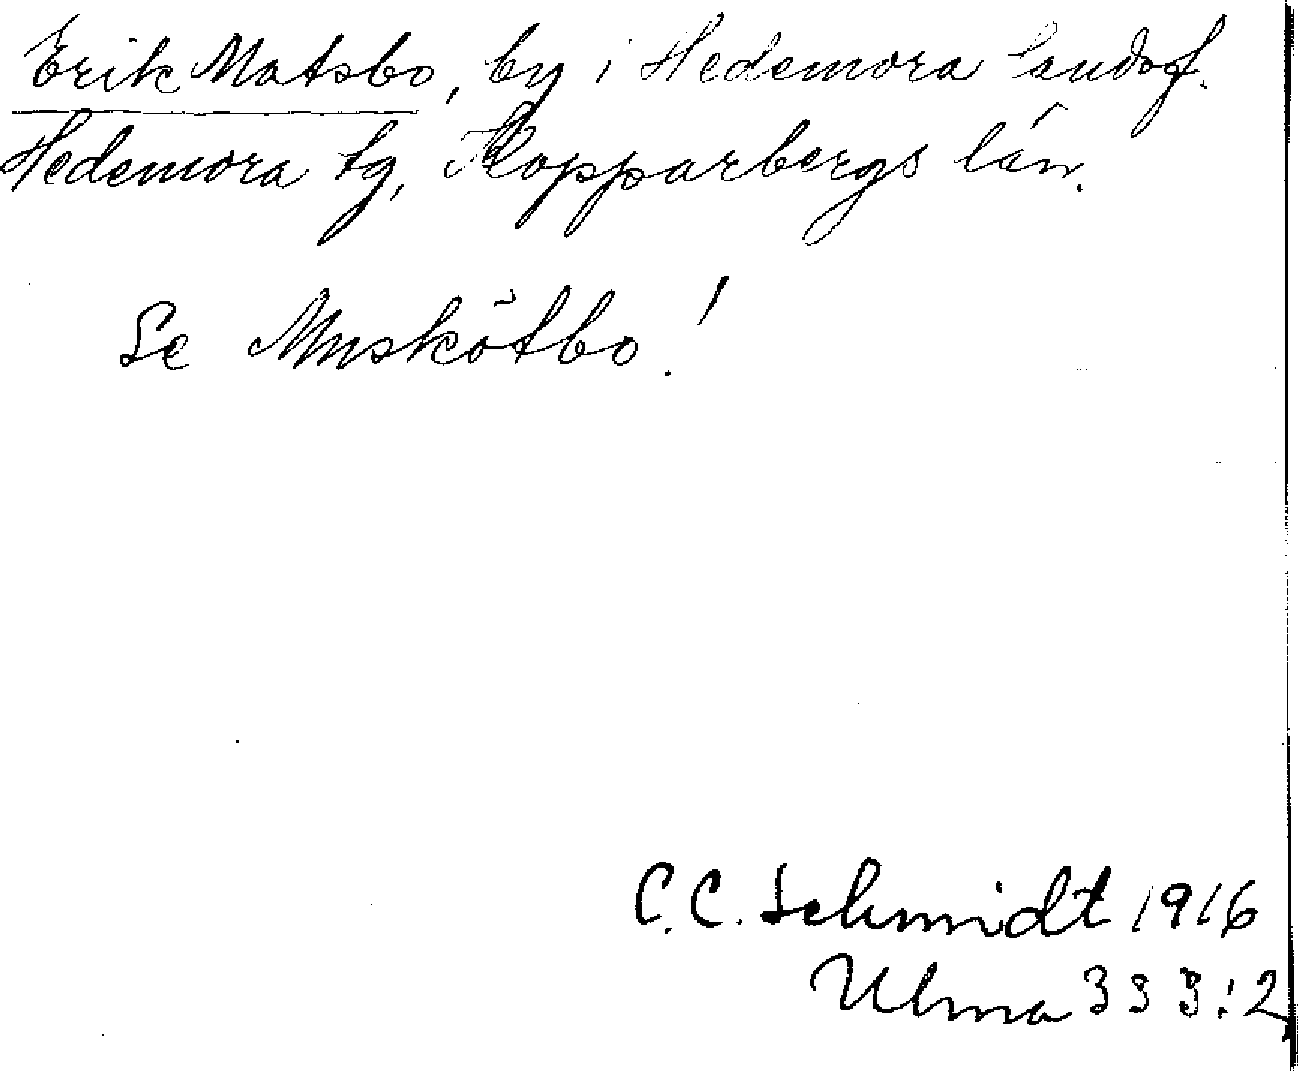 Erik Matsbo, by i Hedemora landsf.
Hedemora tg, Kopparbergs län.
Se Muskötbo!
C.C. Schmidt 1916
Ulma 333:2